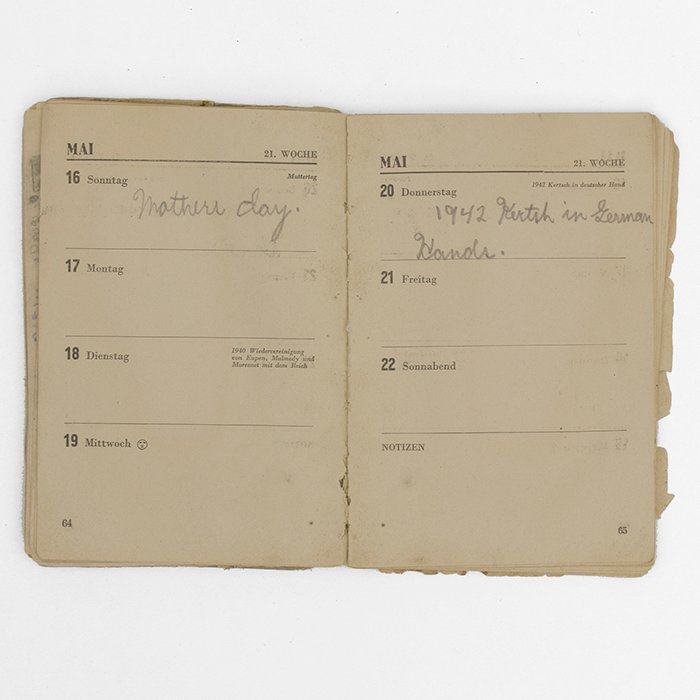 MAI 21. WOCHE
16 Sonntag Muttertag
Mothers day.
17 Montag
18 Dienstag 1940 Wiedervereinigung
von Eupen, Malmedy und
Moresnet mit dem Reich
19 Mittwoch
64
MAI 21. WOCHE
20 Donnerstag 1942 Kertsch in deutscher Hand
1942 Kertsh in German
Hands.
21 Freitag
22 Sonnabend
NOTIZEN
65